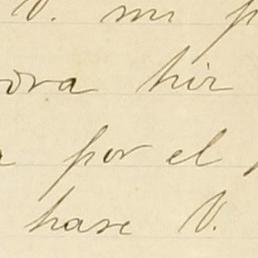 V. mi p
ora hir
por el
hase V.